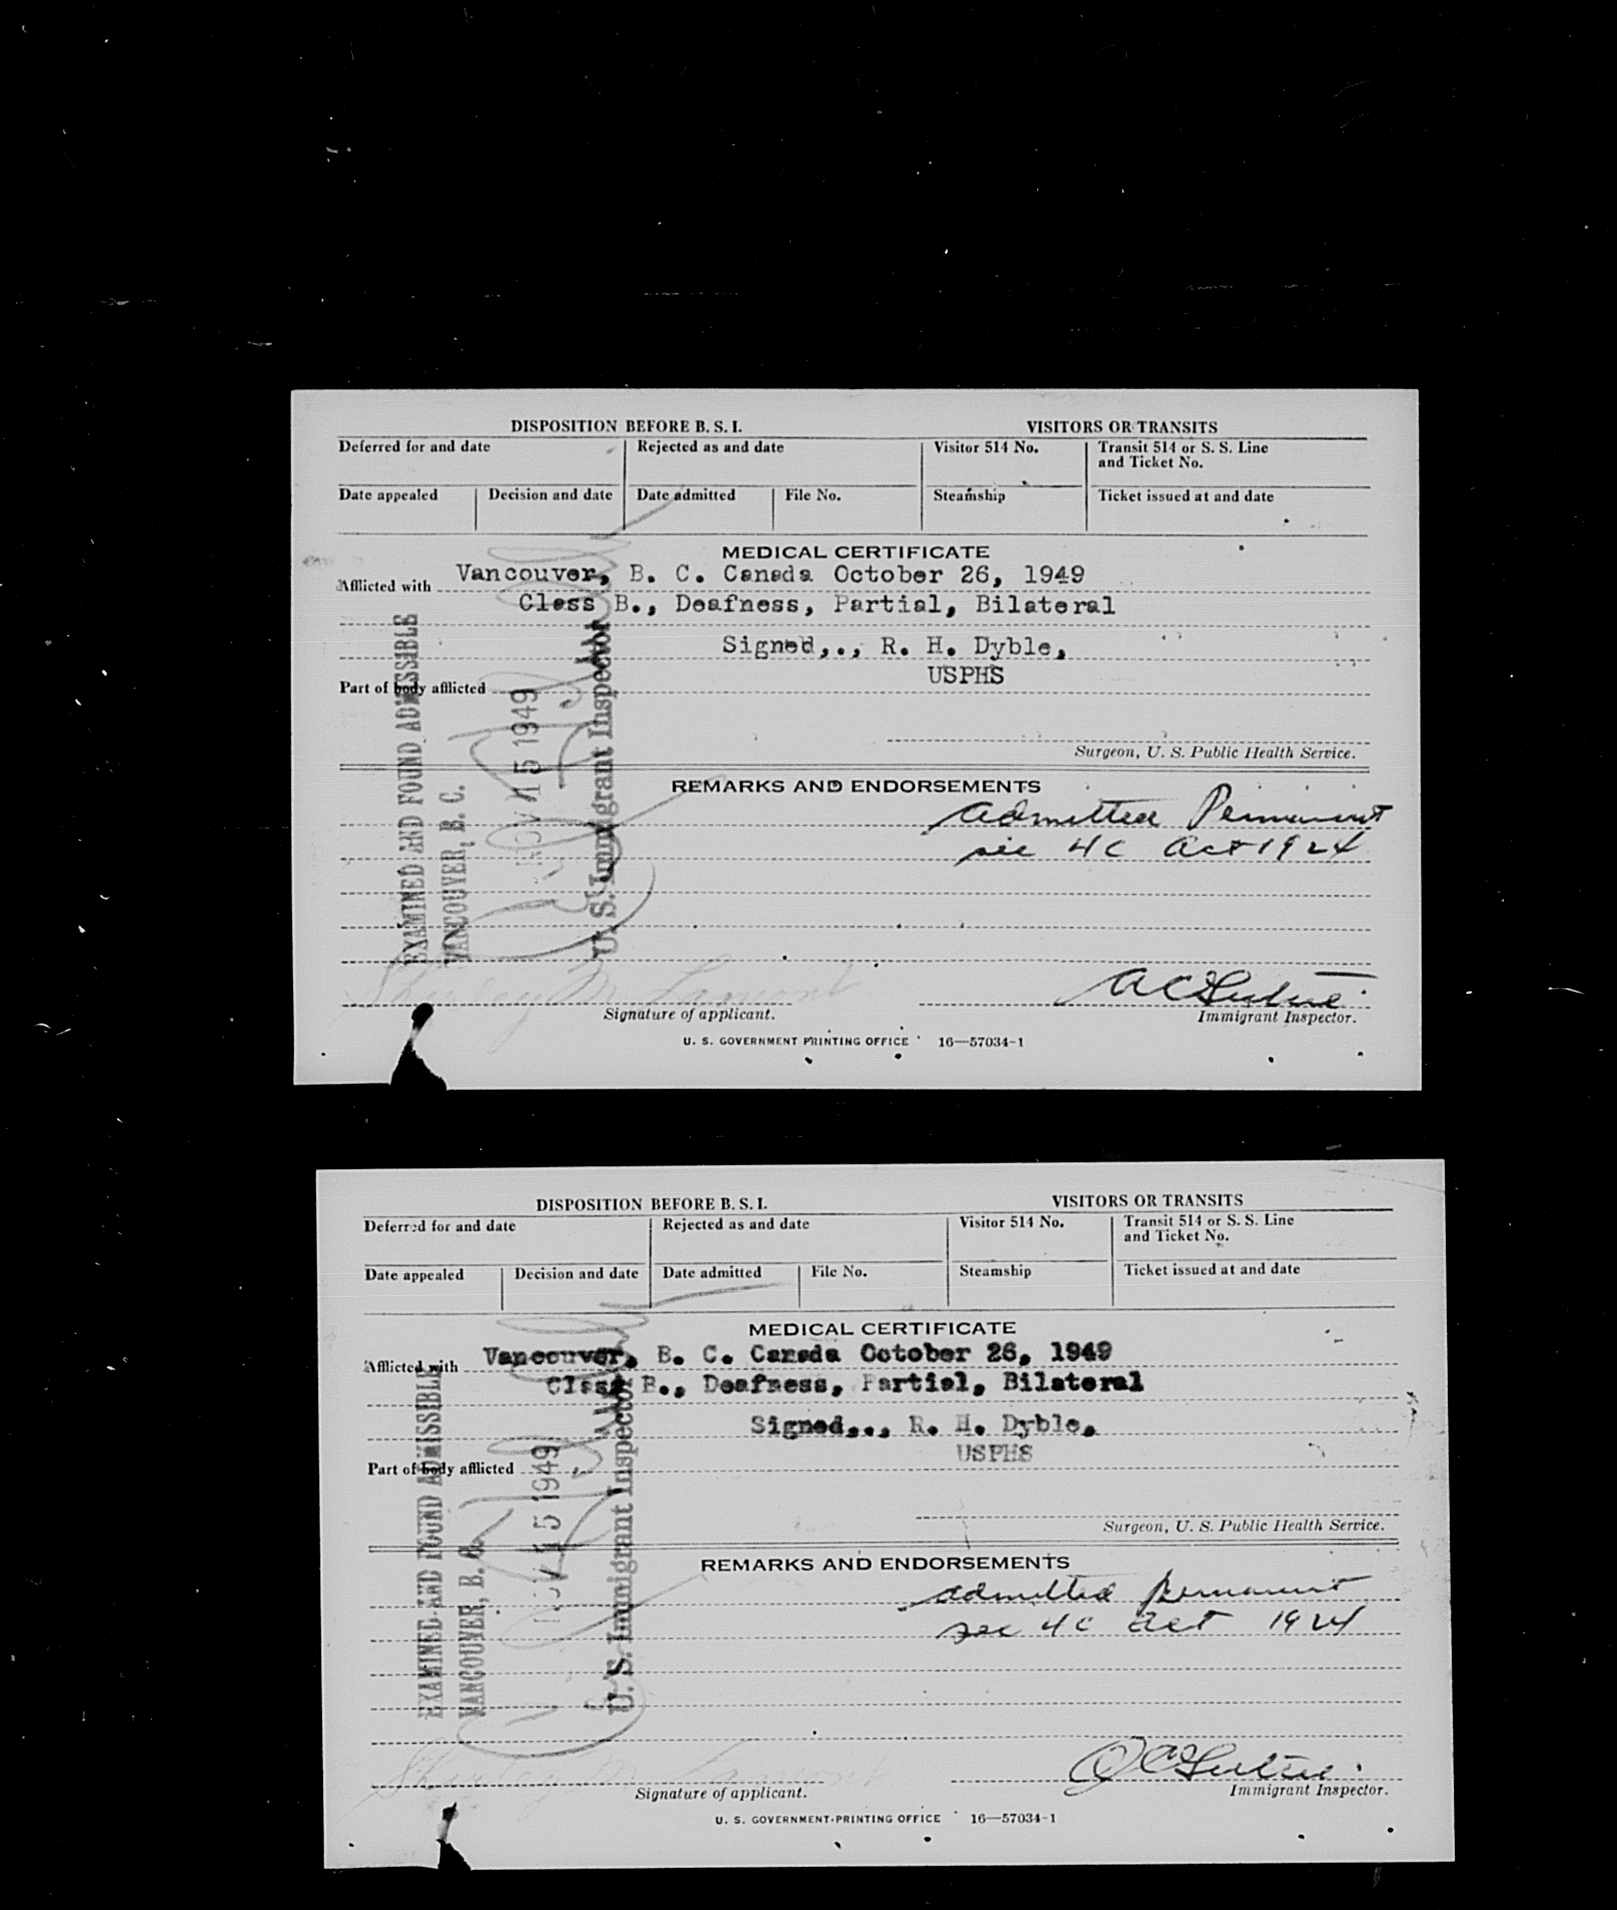 DISPOSITION BEFORE B. S. I.
VISITORS OR TRANSITS
Deferred for and date
Rejected as and date
Visitor 514 No.
Transit 514 or S. S. Line
and Ticket No.
Date appealed
Decision and date
Date admitted
File No.
Steamship
Ticket issued at and date
MEDICAL CERTIFICATE
Afflicted with Vancouver, B. C. Canada October 26, 1949
Class B., Deafness, Partial, Bilateral
Signed,., R. H. Dyble,
USPHS
Part of body afflicted
Surgeon, U. S. Public Health Service.
EXAMINED AND FOUND ADMISSIBLE
VANCOUVER, B. C.
NOV 15 1949
U. S. Immigrant Inspector
REMARKS AND ENDORSEMENTS
admitted Permanent
sec 4c Act 1924
Shirley M Lamont
Signature of applicant.
Immigrant Inspector.
U. S. GOVERNMENT PRINTING OFFICE 16—57034-1
DISPOSITION BEFORE B. S. I.
VISITORS OR TRANSITS
Deferred for and date
Rejected as and date
Visitor 514 No.
Transit 514 or S. S. Line
and Ticket No.
Date appealed
Decision and date
Date admitted
File No.
Steamship
Ticket issued at and date
MEDICAL CERTIFICATE
Afflicted with Vancouver, B. C. Canada October 26, 1949
Class B., Deafness, Partial, Bilateral
Signed,., R. H. Dyble,
USPHS
Part of body afflicted
Surgeon, U. S. Public Health Service.
EXAMINED AND FOUND ADMISSIBLE
VANCOUVER, B. C.
NOV 15 1949
U. S. Immigrant Inspector
REMARKS AND ENDORSEMENTS
admitted permanent
sec 4c Act 1924
Shirley M Lamont
Signature of applicant.
Immigrant Inspector.
U. S. GOVERNMENT PRINTING OFFICE 16—57034-1